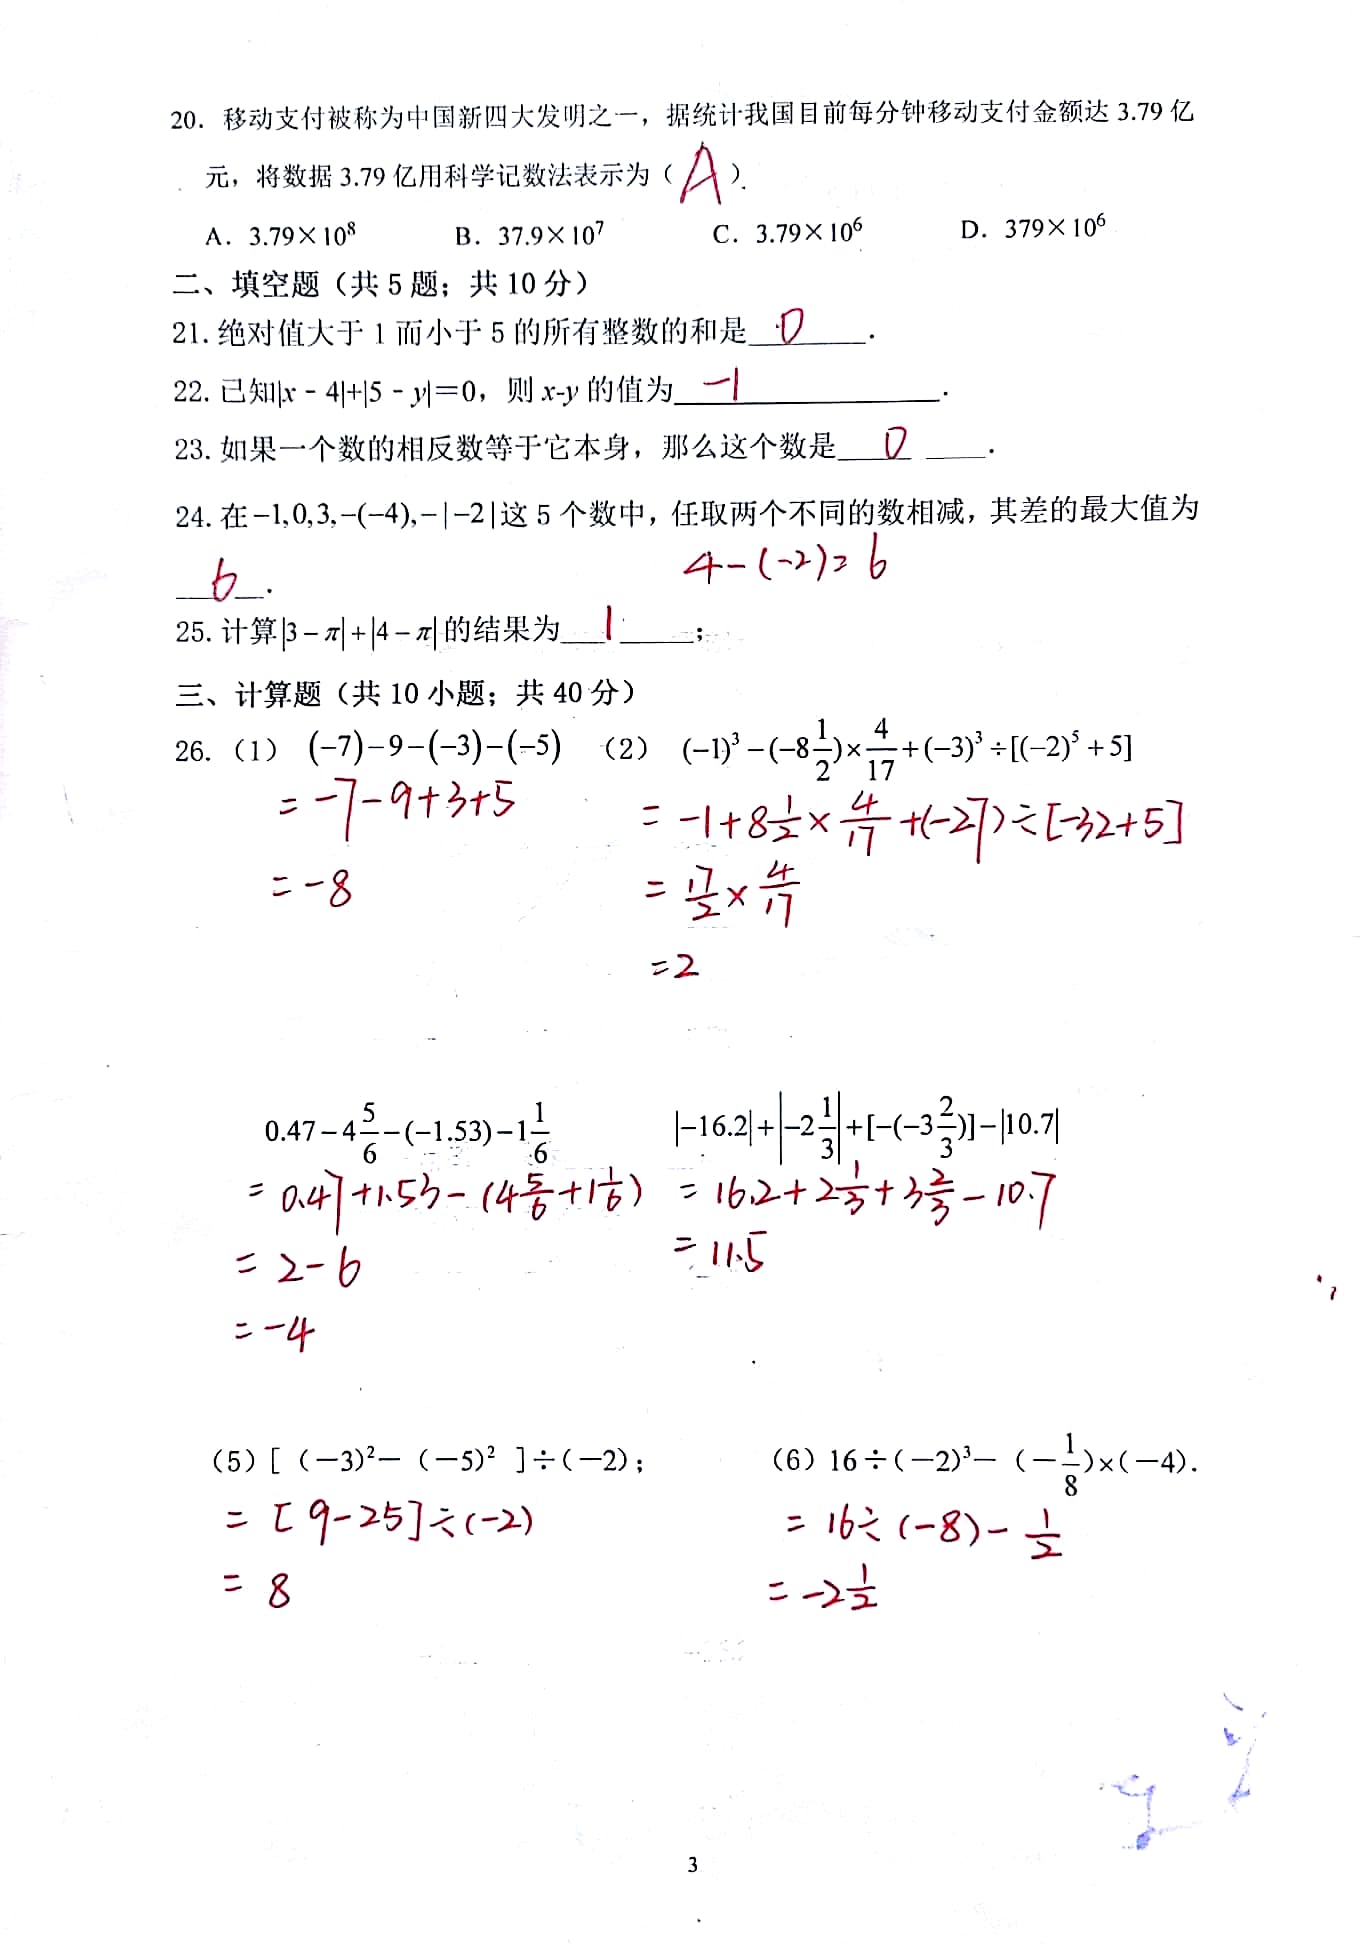 20. 移动支付被称为中国新四大发明之一，据统计我国目前每分钟移动支付金额达 3.79 亿
元，将数据 3.79 亿用科学记数法表示为（ A ）.
A. 3.79×10⁸ B. 37.9×10⁷ C. 3.79×10⁶ D. 379×10⁶
二、填空题（共 5 题；共 10 分）
21. 绝对值大于 1 而小于 5 的所有整数的和是 0 .
22. 已知|x - 4|+|5 - y|=0，则 x-y 的值为 -1 .
23. 如果一个数的相反数等于它本身，那么这个数是 0 .
24. 在 -1,0,3,-(-4),-|-2| 这 5 个数中，任取两个不同的数相减，其差的最大值为
4-(-2)=6
6 .
25. 计算 |3-π|+|4-π| 的结果为 1 ；
三、计算题（共 10 小题；共 40 分）
26.（1） (-7)-9-(-3)-(-5) （2） (-1)³-(-8 1/2)×4/17+(-3)³÷[(-2)⁵+5]
=-7-9+3+5 =-1+8 1/2×4/17+(-27)÷[-32+5]
=-8 =17/2×4/17
=2
0.47-4 5/6-(-1.53)-1 1/6 |-16.2|+|-2 1/3|+[-(-3 2/3)]-|10.7|
=0.47+1.53-(4 5/6+1 1/6) =16.2+2 1/3+3 2/3-10.7
=2-6 =11.5
=-4
（5）[（－3)²－（－5)² ]÷(－2)； （6）16÷(－2)³－（－1/8)×(－4).
=[9-25]÷(-2) =16÷(-8)-1/2
=8 =-2 1/2
3